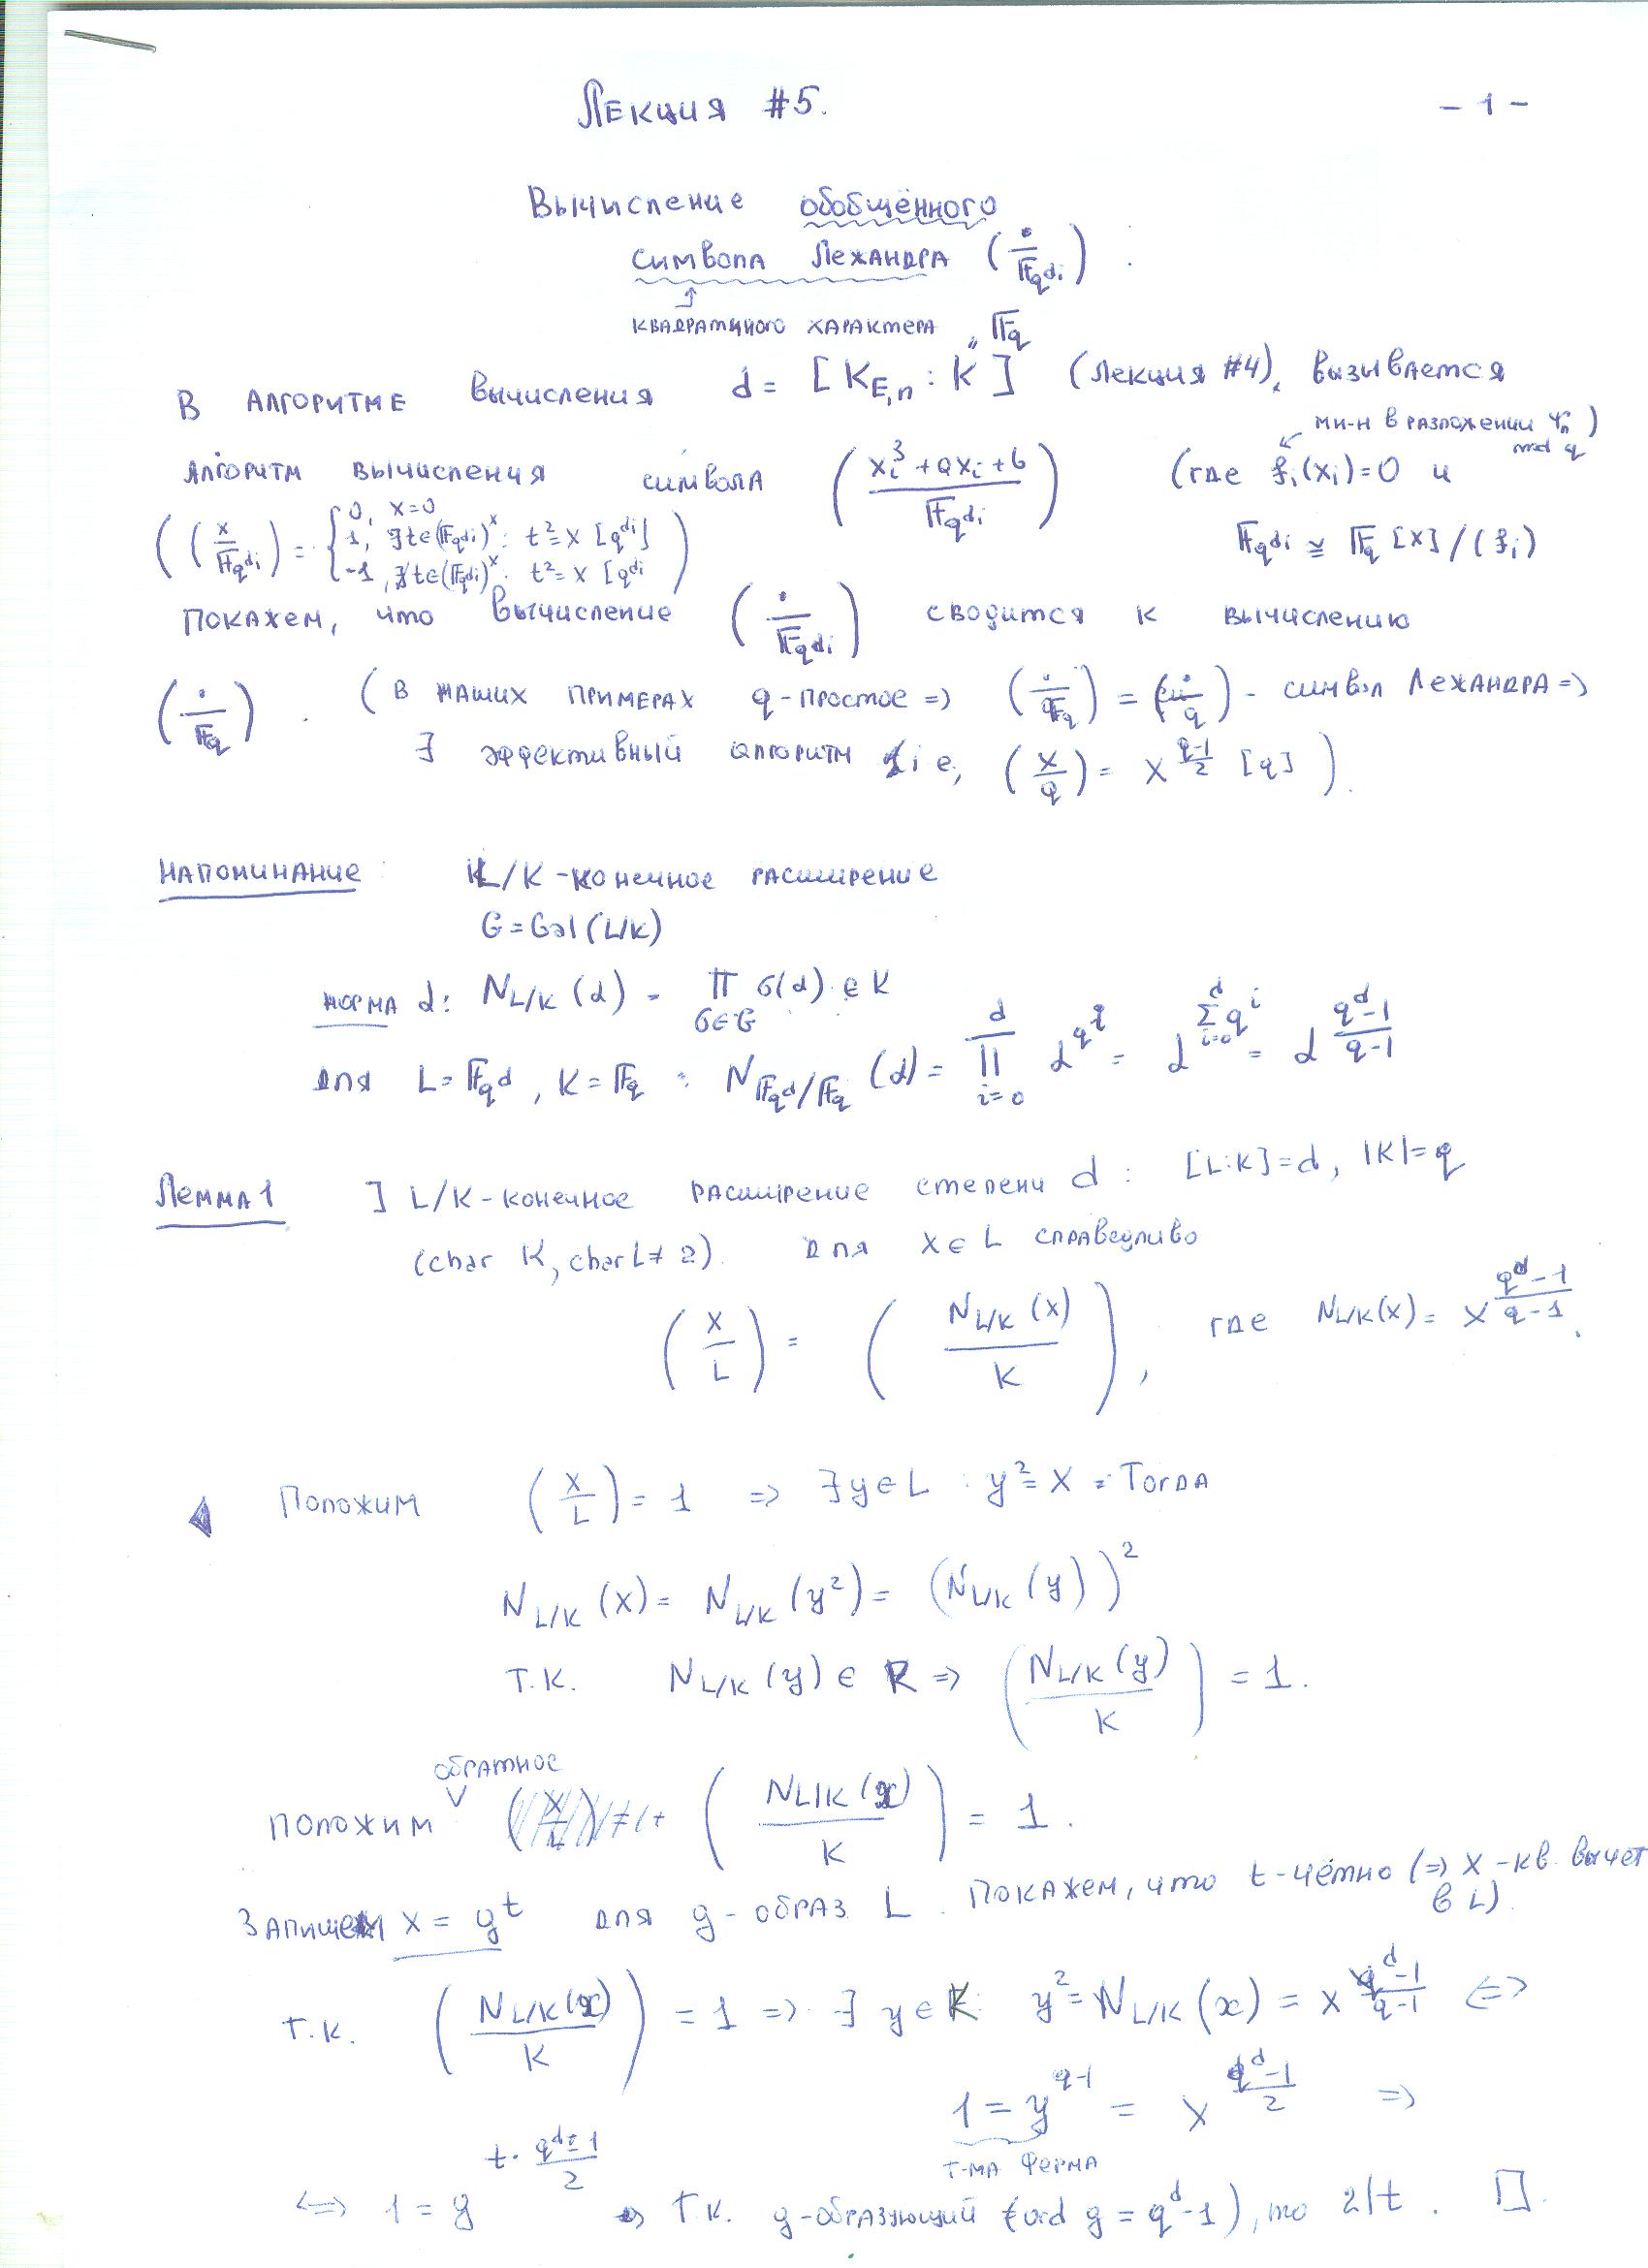 Лекция #5. - 1 -
Вычисление обобщённого
символа Лежандра (•/𝔽_{q^{d_i}}) :
↑
квадратичного характера
В алгоритме вычисления d = [K_{E,n} : K] (лекция #4), вызывается
" 𝔽_q
алгоритм вычисления символа ((x_i^3 + a x_i + b)/𝔽_{q^{d_i}}) (где f_i(x_i) = 0 и
↙ мн-н в разложении Ψ_n mod q )
((x/𝔽_{q^{d_i}}) = { 0, x=0
1, ∃ t ∈ (𝔽_{q^{d_i}})^× : t^2 = x [q^{d_i}]
-1, ∄ t ∈ (𝔽_{q^{d_i}})^× : t^2 = x [q^{d_i} ) 𝔽_{q^{d_i}} ≅ 𝔽_q [x] / (f_i)
Покажем, что вычисление (•/𝔽_{q^{d_i}}) сводится к вычислению
(•/𝔽_q) . (в наших примерах q - простое => (•/𝔽_q) = (•/q) - символ Лежандра =>
∃ эффективный алгоритм i.e, (x/q) = x^{(q-1)/2} [q] ).
Напоминание : L/K - конечное расширение
G = Gal(L/K)
норма α: N_{L/K}(α) = ∏_{σ∈G} σ(α) ∈ K
для L = 𝔽_{q^d}, K = 𝔽_q : N_{𝔽_{q^d}/𝔽_q}(α) = ∏_{i=0}^{d} α^{q^i} = α^{∑_{i=0}^{d} q^i} = α^{(q^d-1)/(q-1)}
Лемма 1 ∃ L/K - конечное расширение степени d : [L:K] = d, |K| = q
(char K, char L ≠ 2). для x ∈ L справедливо
(x/L) = (N_{L/K}(x)/K), где N_{L/K}(x) = x^{(q^d-1)/(q-1)}.
Положим (x/L) = 1 => ∃ y ∈ L : y^2 = x = Тогда
N_{L/K}(x) = N_{L/K}(y^2) = (N_{L/K}(y))^2
т.к. N_{L/K}(y) ∈ K => (N_{L/K}(y)/K) = 1.
обратное
положим ∨ (N_{L/K}(x)/K) = 1.
Запишем x = g^t для g - образ. L. Покажем, что t - чётно (=> x - кв. вычет
в L).
т.к. (N_{L/K}(x)/K) = 1 => ∃ y ∈ K y^2 = N_{L/K}(x) = x^{(q^d-1)/(q-1)} <=>
1 = y^{q-1} = x^{(q^d-1)/2} =>
т-ма Ферма
<=> 1 = g^{t·(q^d-1)/2} => т.к. g - образующий (ord g = q^d - 1), то 2|t. □.